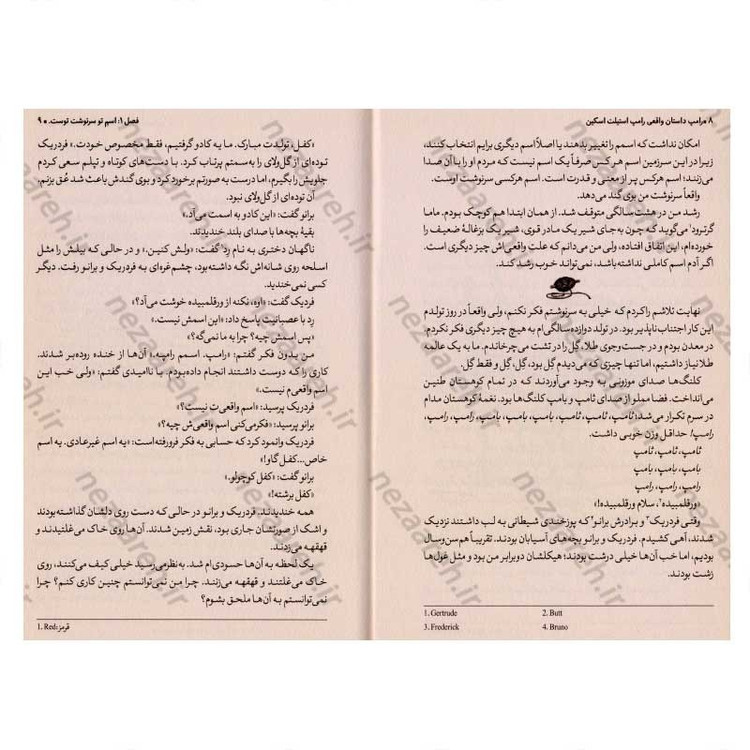 ۸ • رامپ داستان واقعی رامپ استیلت اسکین
امکان نداشت که اسمم را تغییر بدهند یا اصلاً اسم دیگری برایم انتخاب کنند،
زیرا در این سرزمین اسم هرکس صرفاً یک اسم نیست که مردم او را با آن صدا
می‌زنند؛ اسم هرکس پر از معنی و قدرت است. اسم هرکسی سرنوشت اوست.
واقعاً سرنوشت من بوی گند می‌دهد.
رشد من در هشت سالگی متوقف شد. از همان ابتدا هم کوچک بودم. ماما
گرترود۱ می‌گوید که چون به‌جای شیر یک مادر قوی، شیر یک بزغالهٔ ضعیف را
خورده‌ام، این اتفاق افتاده، ولی من می‌دانم که علت واقعی‌اش چیز دیگری است.
اگر آدم اسم کاملی نداشته باشد، نمی‌تواند خوب رشد کند.
نهایت تلاشم را کردم که خیلی به سرنوشتم فکر نکنم، ولی واقعاً در روز تولدم
این کار اجتناب‌ناپذیر بود. در تولد دوازده سالگی‌ام به هیچ چیز دیگری فکر نکردم.
در معدن بودم و در جست‌وجوی طلا، گِل را در تشت می‌چرخاندم. ما به یک عالمه
طلا نیاز داشتیم، اما تنها چیزی که می‌دیدم گِل بود، گِل، گِل و فقط گِل.
کلنگ‌ها صدای موزونی به وجود می‌آوردند که در تمام کوهستان طنین
می‌انداخت. فضا مملو از صدای ثامپ و بامپ کلنگ‌ها بود. نغمهٔ کوهستان مدام
در سرم تکرار می‌شد؛ ثامپ، ثامپ، ثامپ، بامپ، بامپ، بامپ، رامپ، رامپ،
رامپ! حداقل وزن خوبی داشت.
ثامپ، ثامپ، ثامپ
بامپ، بامپ، بامپ
رامپ، رامپ، رامپ
«ورقلمبیده۲، سلام ورقلمبیده!»
وقتی فردریک۳ و برادرش برانو۴ که پوزخندی شیطانی به لب داشتند نزدیک
شدند، آهی کشیدم. فردریک و برانو بچه‌های آسیابان بودند. تقریباً هم‌سن‌وسال
بودیم، اما خب آن‌ها خیلی درشت بودند؛ هیکلشان دوبرابر من بود و مثل غول‌ها
زشت بودند.
1. Gertrude 2. Butt
3. Frederick 4. Bruno
فصل ۱: اسم تو سرنوشت توست. • ۹
«کفل، تولدت مبارک. ما یه کادو گرفتیم، فقط مخصوص خودت.» فردریک
توده‌ای از گل‌ولای را به‌سمتم پرتاب کرد. با دست‌های کوتاه و تپلم سعی کردم
جلویش را بگیرم، اما درست به صورتم برخورد کرد و بوی گندش باعث شد عُق بزنم.
آن توده‌ای از گل‌ولای نبود.
برانو گفت: «این کادو به اسمت می‌آد.»
بقیهٔ بچه‌ها با صدای بلند خندیدند.
ناگهان دختری به نام رِد۱ گفت: «ولش کنین.» و در حالی که بیلش را مثل
اسلحه روی شانه‌اش نگه داشته بود، چشم‌غره‌ای به فردریک و برانو رفت. دیگر
کسی نمی‌خندید.
فردیک گفت: «اوه، نکنه از ورقلمبیده خوشت می‌آد؟»
رِد با عصبانیت پاسخ داد: «این اسمش نیست.»
«پس اسمش چیه؟ چرا به ما نمی‌گه؟»
من بدون فکر گفتم: «رامپ. اسمم رامپه.» آن‌ها از خنده روده‌بر شدند.
کاری را که دوست داشتند انجام داده بودم. با ناامیدی گفتم: «ولی خب این
اسم واقعی‌م نیست.»
فردریک پرسید: «اسم واقعی‌ت نیست؟»
برانو پرسید: «فکر می‌کنی اسم واقعی‌ش چیه؟»
فردریک وانمود کرد که حسابی به فکر فرورفته است: «یه اسم غیرعادی. یه اسم
خاص...کفل گاو!»
برانو گفت: «کفل کوچولو.»
«کفل برشته!»
همه خندیدند. فردریک و برانو در حالی که دست روی دلشان گذاشته بودند
و اشک از صورتشان جاری بود، نقش زمین شدند. آن‌ها روی خاک می‌غلتیدند و
قهقهه می‌زدند.
یک لحظه به آن‌ها حسودی‌ام شد. به‌نظر می‌رسید خیلی کیف می‌کنند، روی
خاک می‌غلتند و قهقهه می‌زنند. چرا من نمی‌توانستم چنین کاری کنم؟ چرا
نمی‌توانستم به آن‌ها ملحق بشوم؟
1. Red: قرمز
nezaareh.ir